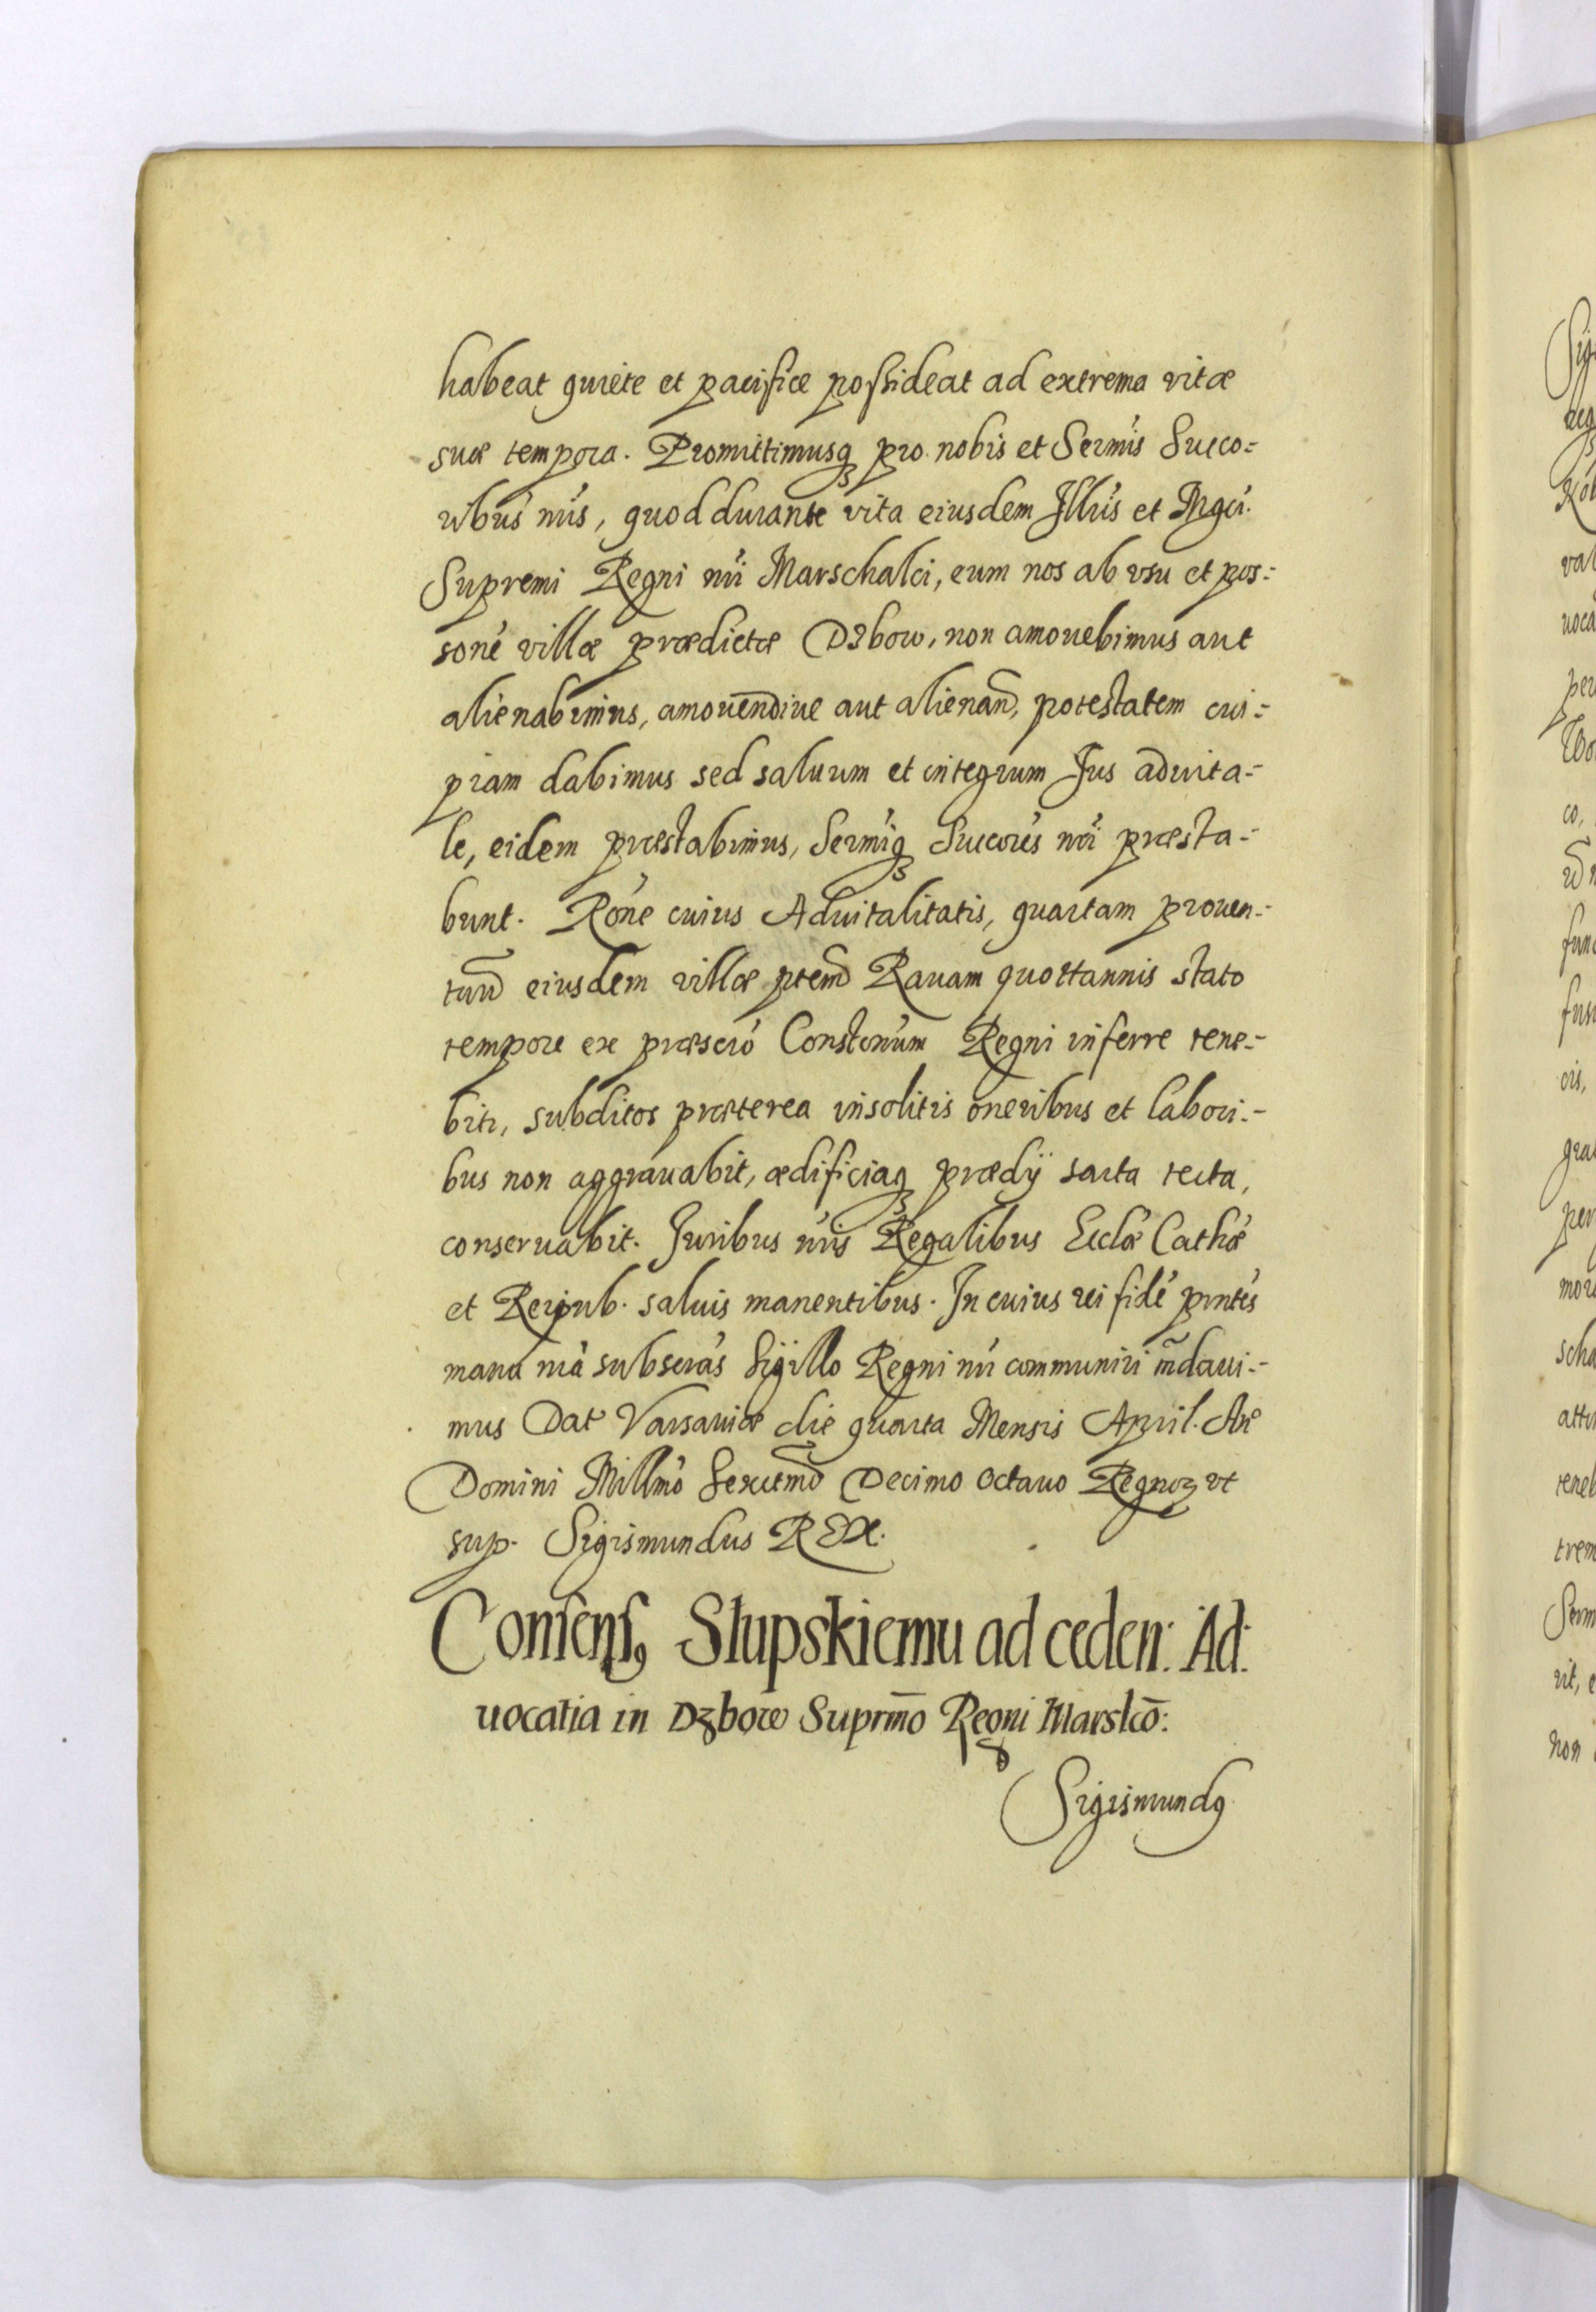 habeat quiete et pacifice possideat ad extrema vitæ
suæ tempora. Promittimusq3 pro nobis et Sermis Succo-
ribus nris, quod durante vita eiusdem Illus et Mgci.
Supremi Regni nri Marschalci, eum nos ab vsu et pos-
sone villæ prædictæ Dzbow, non amouebimus aut
alienabimus, amouendiue aut alienand, potestatem cui-
piam dabimus sed saluum et integrum Jus aduita-
le, eidem præstabimus, Sermiq3 Succores nri præsta-
bunt. Rone cuius Aduitalitatis, quartam prouen-
tuu eiusdem villæ ptem Rauam quottannis stato
tempore ex præscro Constonum Regni inferre tene-
bitr, subditos præterea insolitis oneribus et labori-
bus non aggrauabit, ædificiaq3 prædij sarta tecta,
conseruabit. Juribus nris Regalibus Ecclæ Cathæ
et Reipub. saluis manentibus. In cuius rei fide pntes
manu nra subscras Sigillo Regni nri communiri mdaui-
mus Dat Varsauiæ die quarta Mensis April. Ao
Domini Millmo Sexctmo Decimo Octauo Regnoꝝ vt
sup. Sigismundus REX.
Consensꝰ Słupskiemu ad ceden: Ad:
uocatia in Dzbow Suprmō Regni Marslcō:
Sigismundꝰ